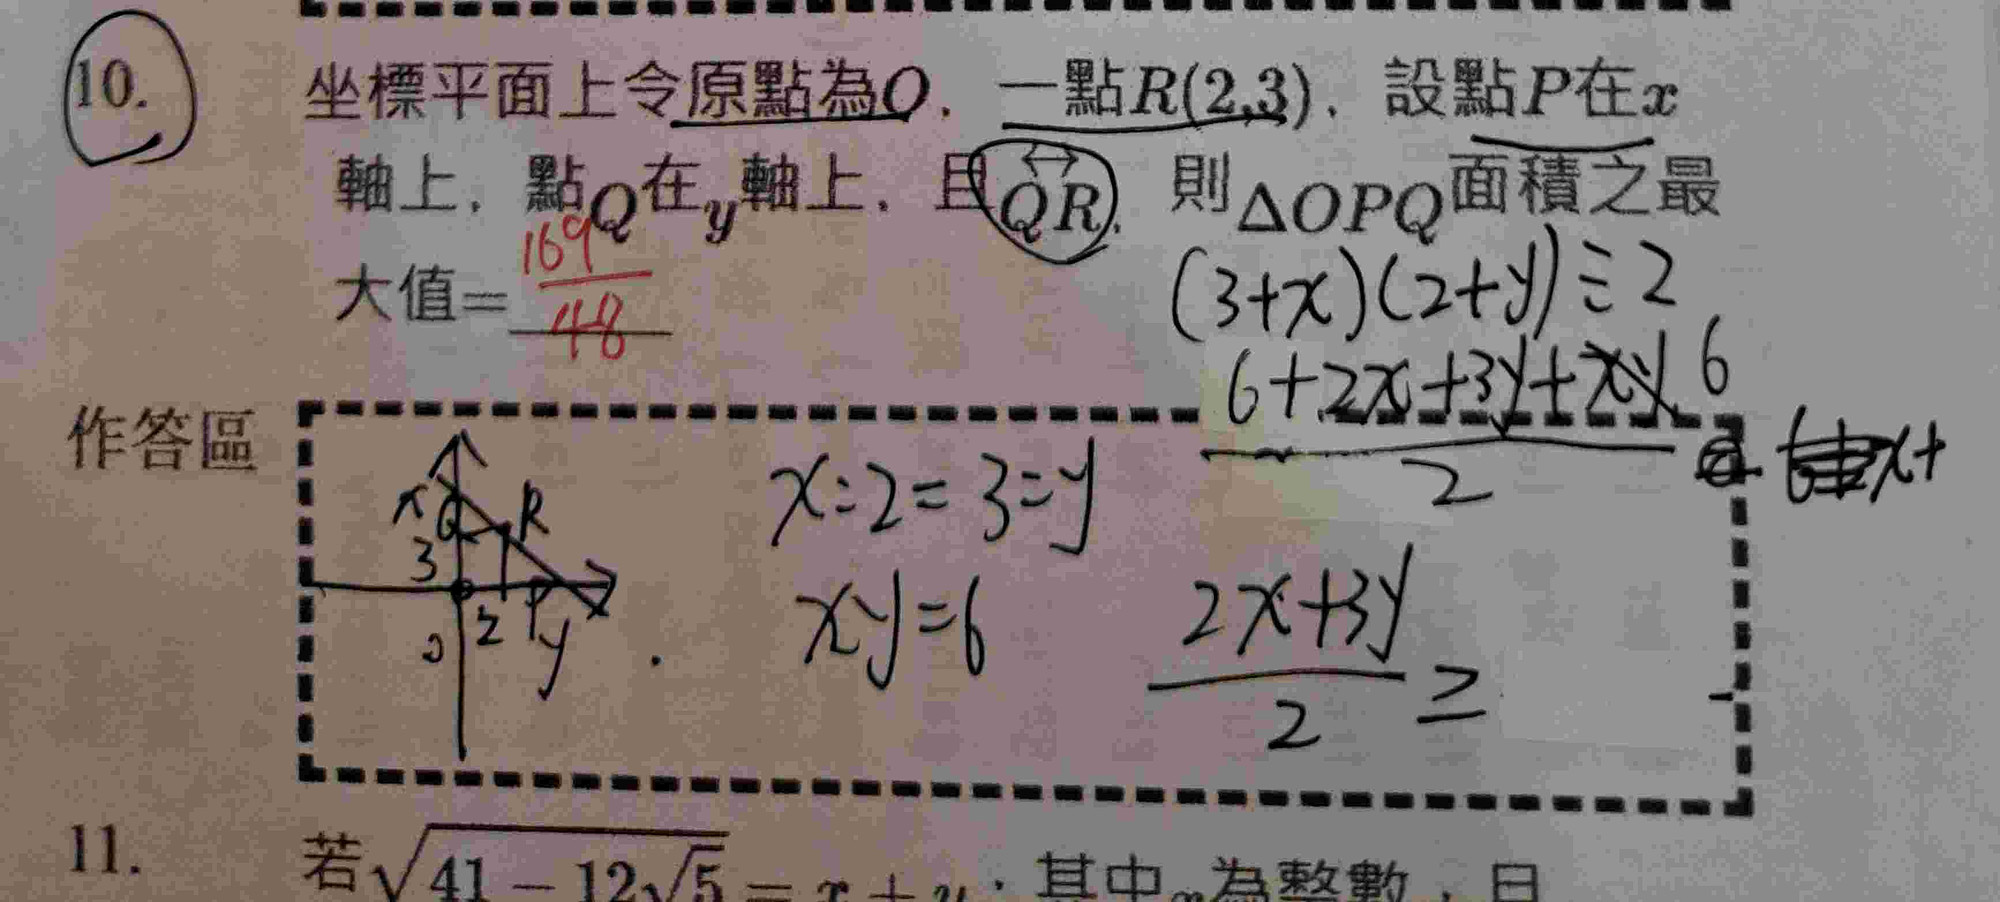 10. 坐標平面上令原點為O,一點R(2,3),設點P在x
軸上,點Q在y軸上,且QR,則△OPQ面積之最
大值=169/48
(3+x)(2+y)÷2
6+2x+3y+xy 6
2
x+
作答區
x Q R
3
2 P
y
x:2=3:y
xy=6
2x+3y
2
≥
11. 若√41-12√5=x+y;其中x為整數,且